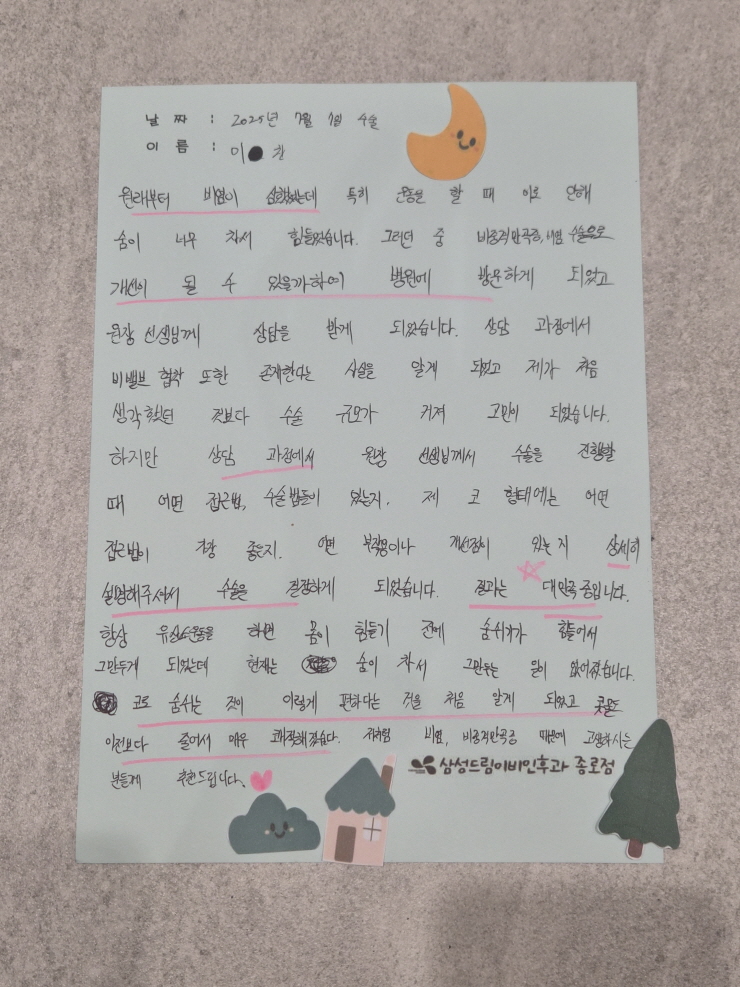 날 짜 : 2025년 7월 1일 수술
이 름 : 이 찬
원래부터 비염이 심했었는데 특히 운동을 할 때 이로 인해
숨이 너무 차서 힘들었습니다. 그러던 중 비중격만곡증, 비염 수술으로
개선이 될 수 있을까하여 병원에 방문하게 되었고
원장 선생님께 상담을 받게 되었습니다. 상담 과정에서
비밸브 협착 또한 존재한다는 사실을 알게 되었고 제가 처음
생각했던 것보다 수술 규모가 커져 고민이 되었습니다.
하지만 상담 과정에서 원장 선생님께서 수술을 진행할
때 어떤 접근법, 수술법들이 있는지. 제 코 형태에는 어떤
접근법이 가장 좋은지. 어떤 부작용이나 개선점이 있는지 상세히
설명해주셔서 수술을 결정하게 되었습니다. 결과는 대만족중입니다.
항상 유산소운동을 하면 몸이 힘들기 전에 숨쉬기가 힘들어서
그만두게 되었는데 현재는 숨이 차서 그만두는 일이 없어졌습니다.
코로 숨쉬는 것이 이렇게 편하다는 것을 처음 알게 되었고 콧물도
이전보다 줄어서 매우 쾌적해졌습니다. 저처럼 비염, 비중격만곡증 때문에 고생하시는
분들께 추천드립니다.
삼성드림이비인후과 종로점